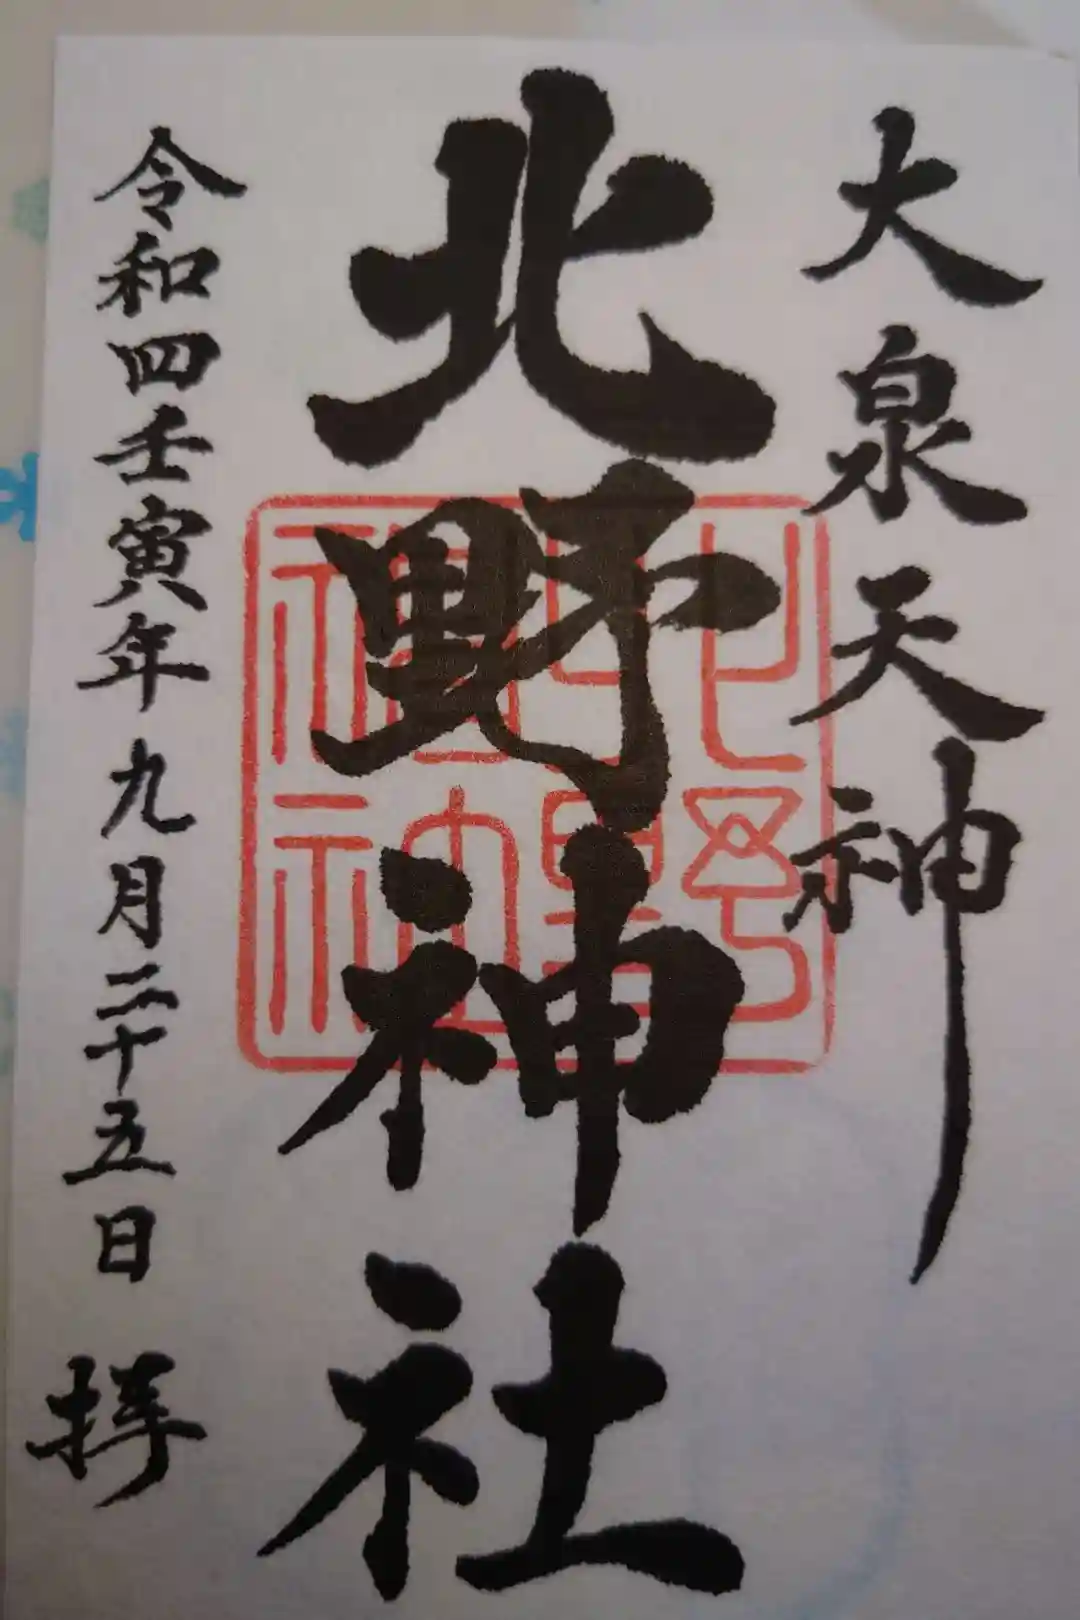 大泉天神
北野神社
北野神社
令和四壬寅年九月二十五日 拝